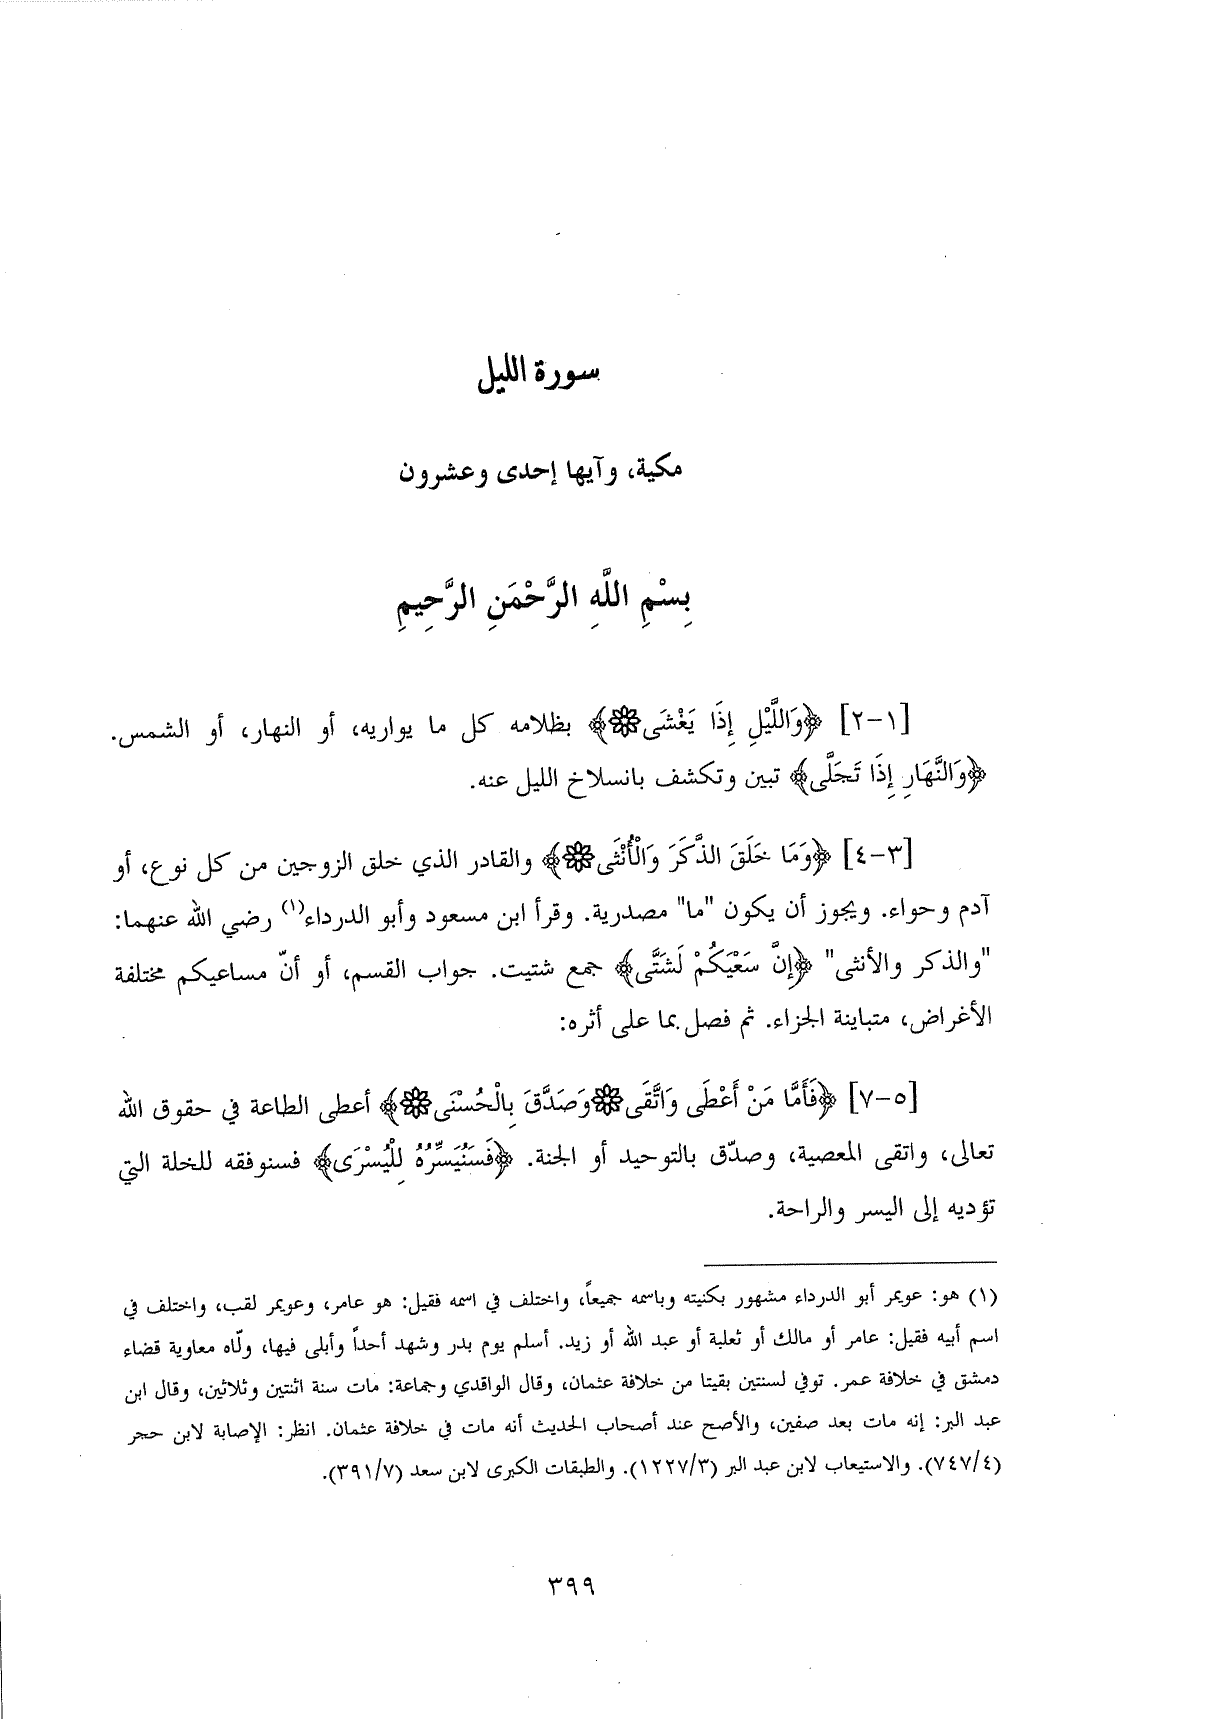 سورة الليل
مكية، وآيها إحدى وعشرون
بِسْمِ اللَّهِ الرَّحْمَنِ الرَّحِيمِ
[١-٢] ﴿وَاللَّيْلِ إِذَا يَغْشَى۝﴾ بظلامه كل ما يواريه، أو النهار، أو الشمس.
﴿وَالنَّهَارِ إِذَا تَجَلَّى﴾ تبين وتكشف بانسلاخ الليل عنه.
[٣-٤] ﴿وَمَا خَلَقَ الذَّكَرَ وَالْأُنْثَى۝﴾ والقادر الذي خلق الزوجين من كل نوع، أو
آدم وحواء. ويجوز أن يكون "ما" مصدرية. وقرأ ابن مسعود وأبو الدرداء(١) رضي الله عنهما:
"والذكر والأنثى" ﴿إِنَّ سَعْيَكُمْ لَشَتَّى﴾ جمع شتيت. جواب القسم، أو أنّ مساعيكم مختلفة
الأغراض، متباينة الجزاء. ثم فصل بما على أثره:
[٥-٧] ﴿فَأَمَّا مَنْ أَعْطَى وَاتَّقَى۝وَصَدَّقَ بِالْحُسْنَى۝﴾ أعطى الطاعة في حقوق الله
تعالى، واتقى المعصية، وصدّق بالتوحيد أو الجنة. ﴿فَسَنُيَسِّرُهُ لِلْيُسْرَى﴾ فسنوفقه للخلة التي
تؤديه إلى اليسر والراحة.
(١) هو: عويمر أبو الدرداء مشهور بكنيته وباسمه جميعاً، واختلف في اسمه فقيل: هو عامر، وعويمر لقب، واختلف في
اسم أبيه فقيل: عامر أو مالك أو ثعلبة أو عبد الله أو زيد. أسلم يوم بدر وشهد أحداً وأبلى فيها، ولّاه معاوية قضاء
دمشق في خلافة عمر. توفي لسنتين بقيتا من خلافة عثمان، وقال الواقدي وجماعة: مات سنة اثنتين وثلاثين، وقال ابن
عبد البر: إنه مات بعد صفين، والأصح عند أصحاب الحديث أنه مات في خلافة عثمان. انظر: الإصابة لابن حجر
(٧٤٧/٤). والاستيعاب لابن عبد البر (١٢٢٧/٣). والطبقات الكبرى لابن سعد (٣٩١/٧).
٣٩٩